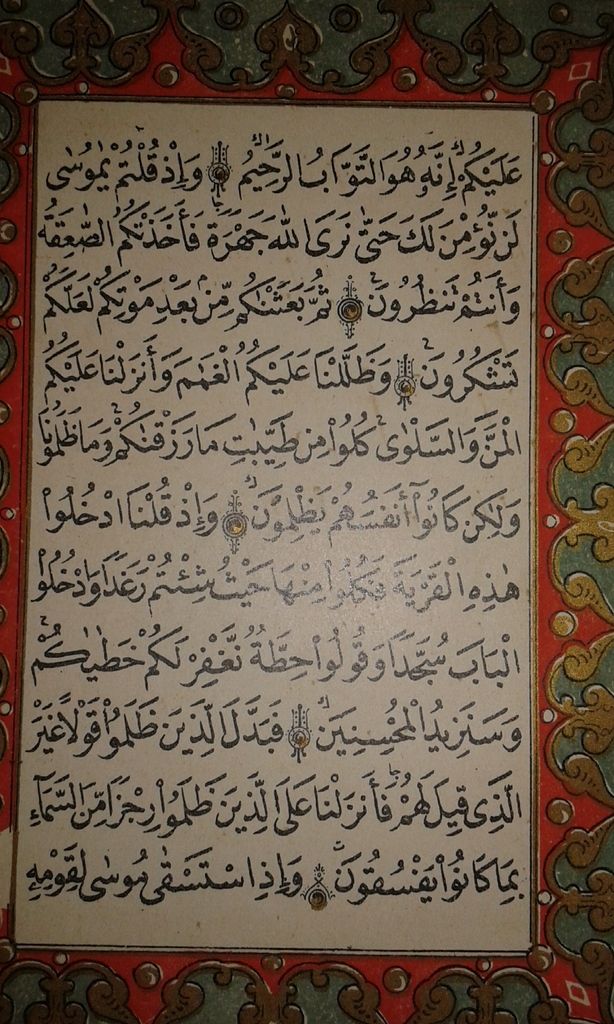 عَلَيْكُمْ إِنَّهُ هُوَ التَّوَّابُ الرَّحِيمُ وَإِذْ قُلْتُمْ يٰمُوسٰى
لَنْ نُؤْمِنَ لَكَ حَتّٰى نَرَى اللّٰهَ جَهْرَةً فَأَخَذَتْكُمُ الصّٰعِقَةُ
وَأَنْتُمْ تَنْظُرُونَ ثُمَّ بَعَثْنٰكُمْ مِّنْ بَعْدِ مَوْتِكُمْ لَعَلَّكُمْ
تَشْكُرُونَ وَظَلَّلْنَا عَلَيْكُمُ الْغَمٰمَ وَأَنْزَلْنَا عَلَيْكُمُ
الْمَنَّ وَالسَّلْوٰى كُلُوا مِنْ طَيِّبٰتِ مَا رَزَقْنٰكُمْ وَمَا ظَلَمُونَا
وَلٰكِنْ كَانُوٓا أَنْفُسَهُمْ يَظْلِمُونَ وَإِذْ قُلْنَا ادْخُلُوا
هٰذِهِ الْقَرْيَةَ فَكُلُوا مِنْهَا حَيْثُ شِئْتُمْ رَغَدًا وَادْخُلُوا
الْبَابَ سُجَّدًا وَقُولُوا حِطَّةٌ نَّغْفِرْ لَكُمْ خَطٰيٰكُمْ
وَسَنَزِيدُ الْمُحْسِنِينَ فَبَدَّلَ الَّذِينَ ظَلَمُوا قَوْلًا غَيْرَ
الَّذِى قِيلَ لَهُمْ فَأَنْزَلْنَا عَلَى الَّذِينَ ظَلَمُوا رِجْزًا مِّنَ السَّمَآءِ
بِمَا كَانُوا يَفْسُقُونَ وَإِذِ اسْتَسْقٰى مُوسٰى لِقَوْمِهِ